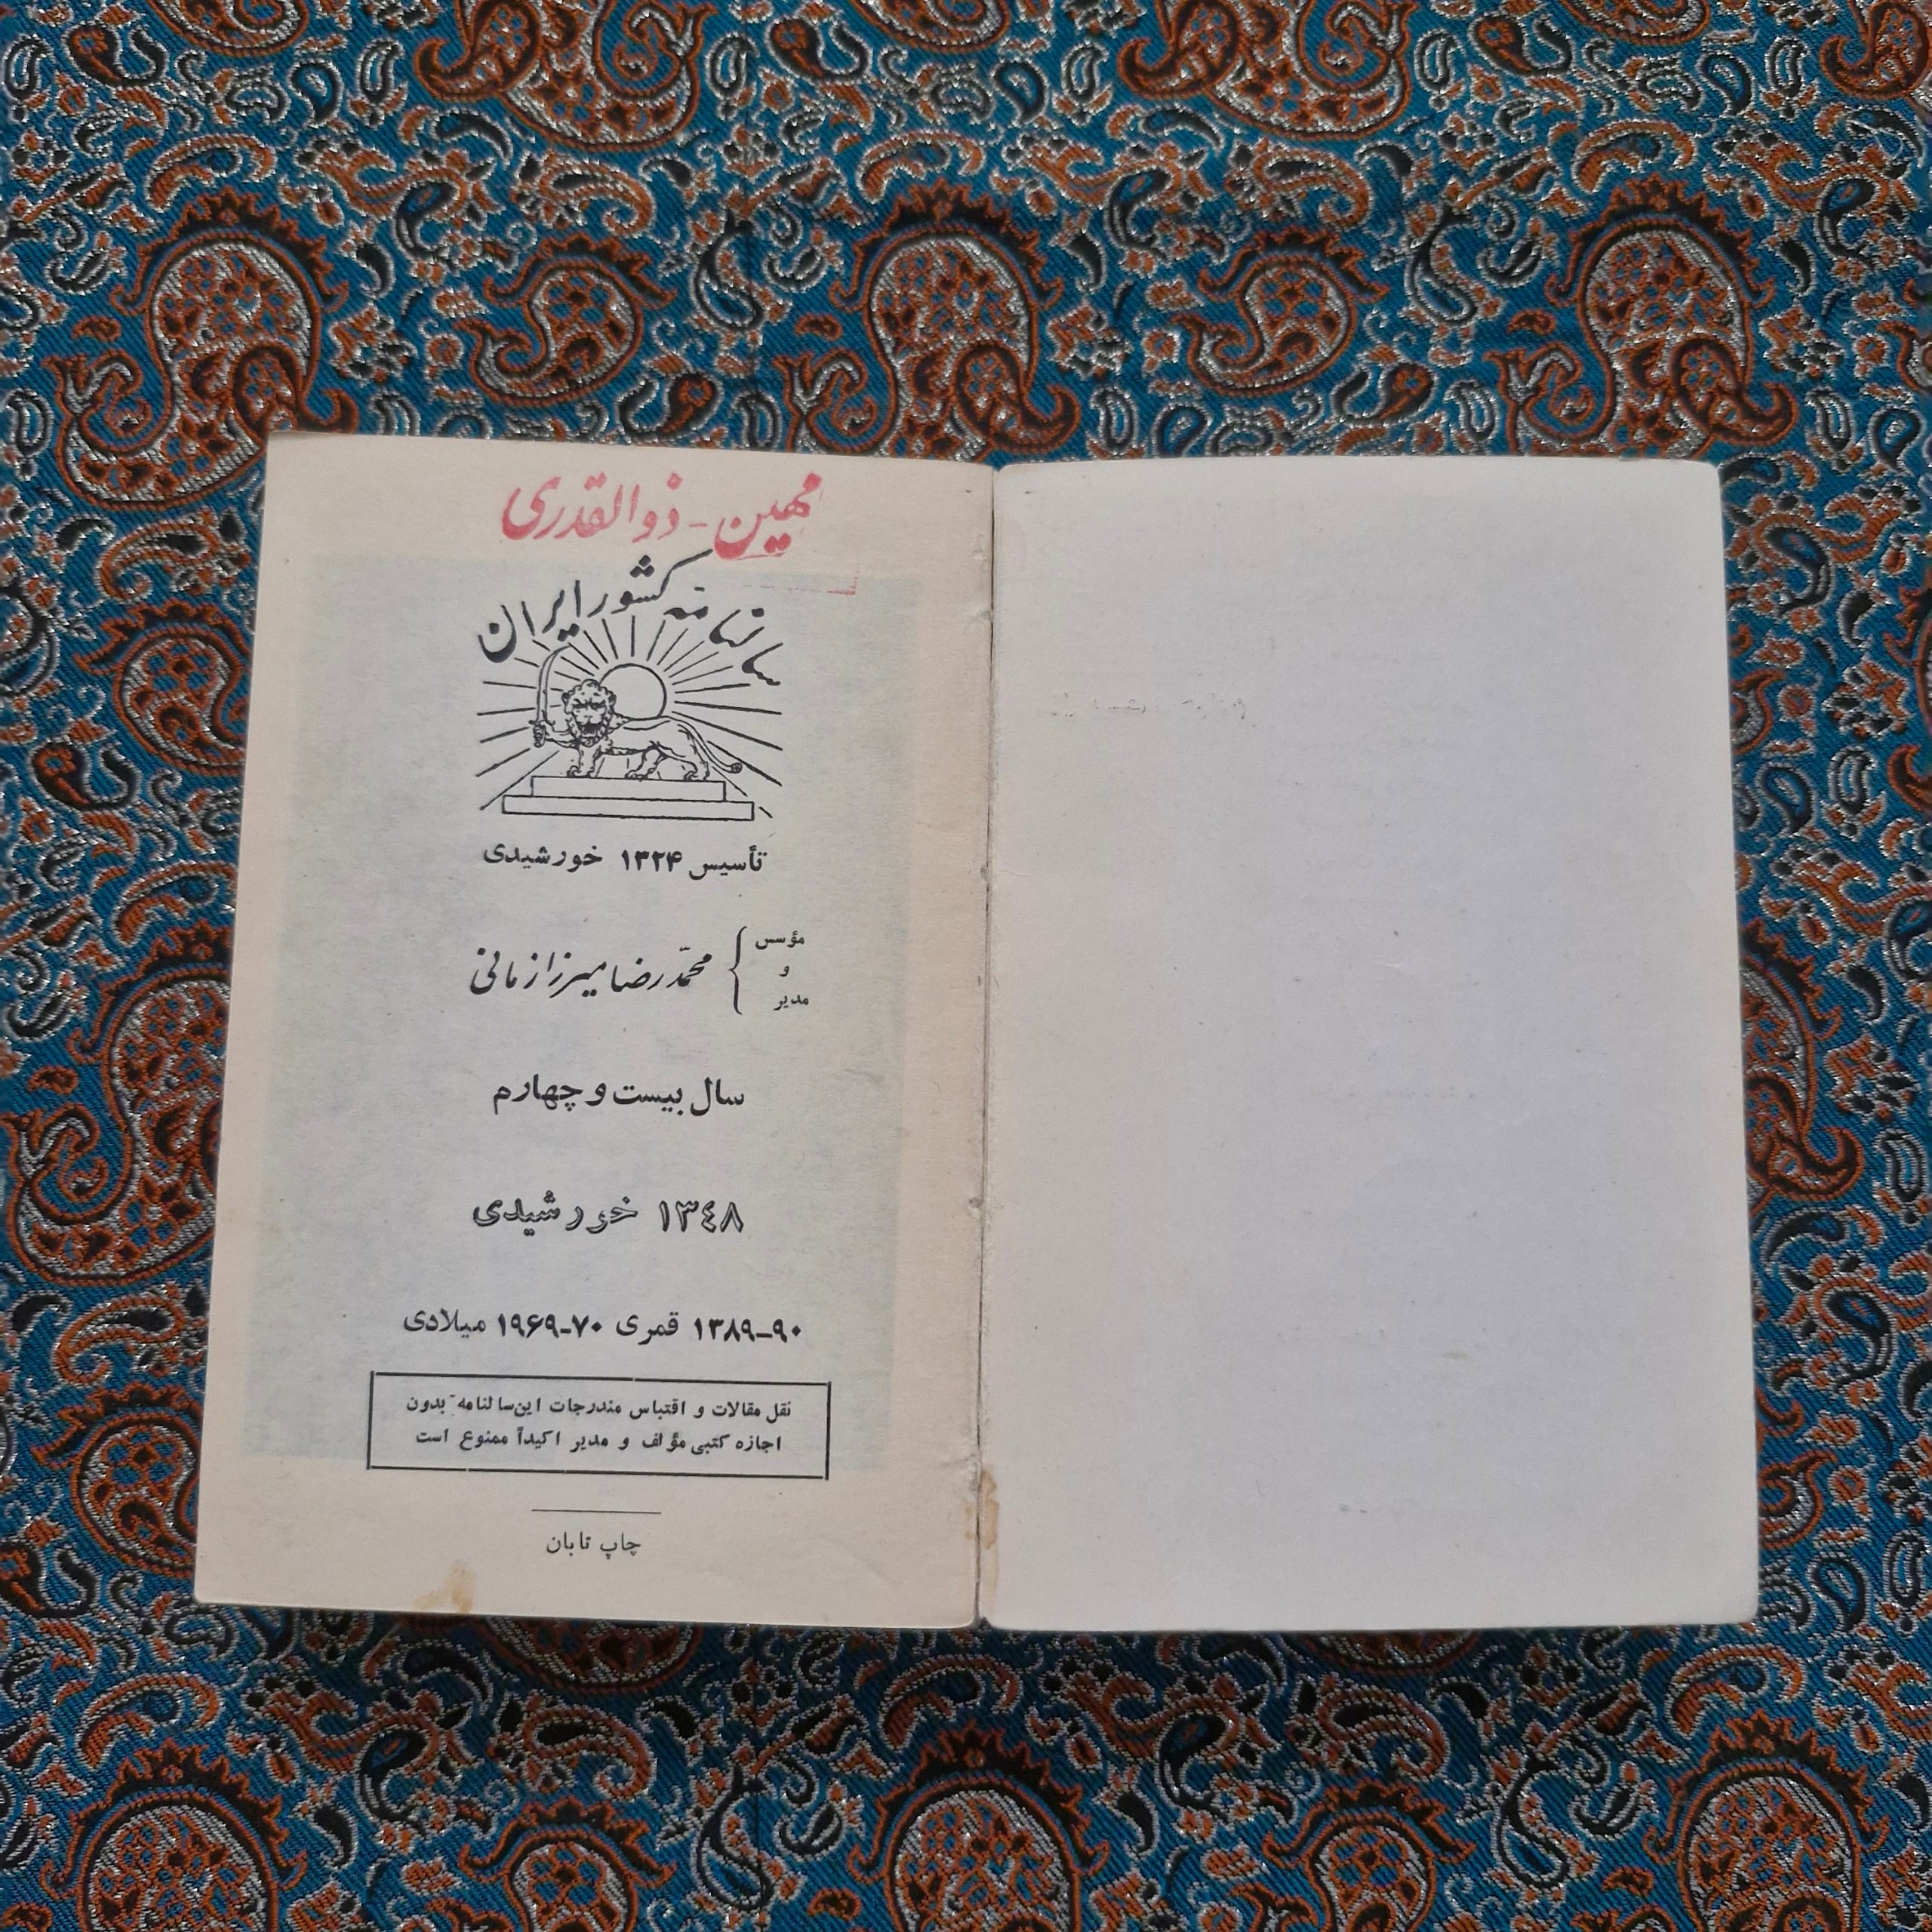 مهین - ذوالقدری
سالنامه کشور ایران
تأسیس ۱۳۲۴ خورشیدی
مؤسس
و
مدیر
محمّدرضا میرزا زمانی
سال بیست و چهارم
۱۳۴۸ خورشیدی
۱۳۸۹-۹۰ قمری ۱۹۶۹-۷۰ میلادی
نقل مقالات و اقتباس مندرجات این سالنامه بدون
اجازه کتبی مؤلف و مدیر اکیداً ممنوع است
چاپ تابان